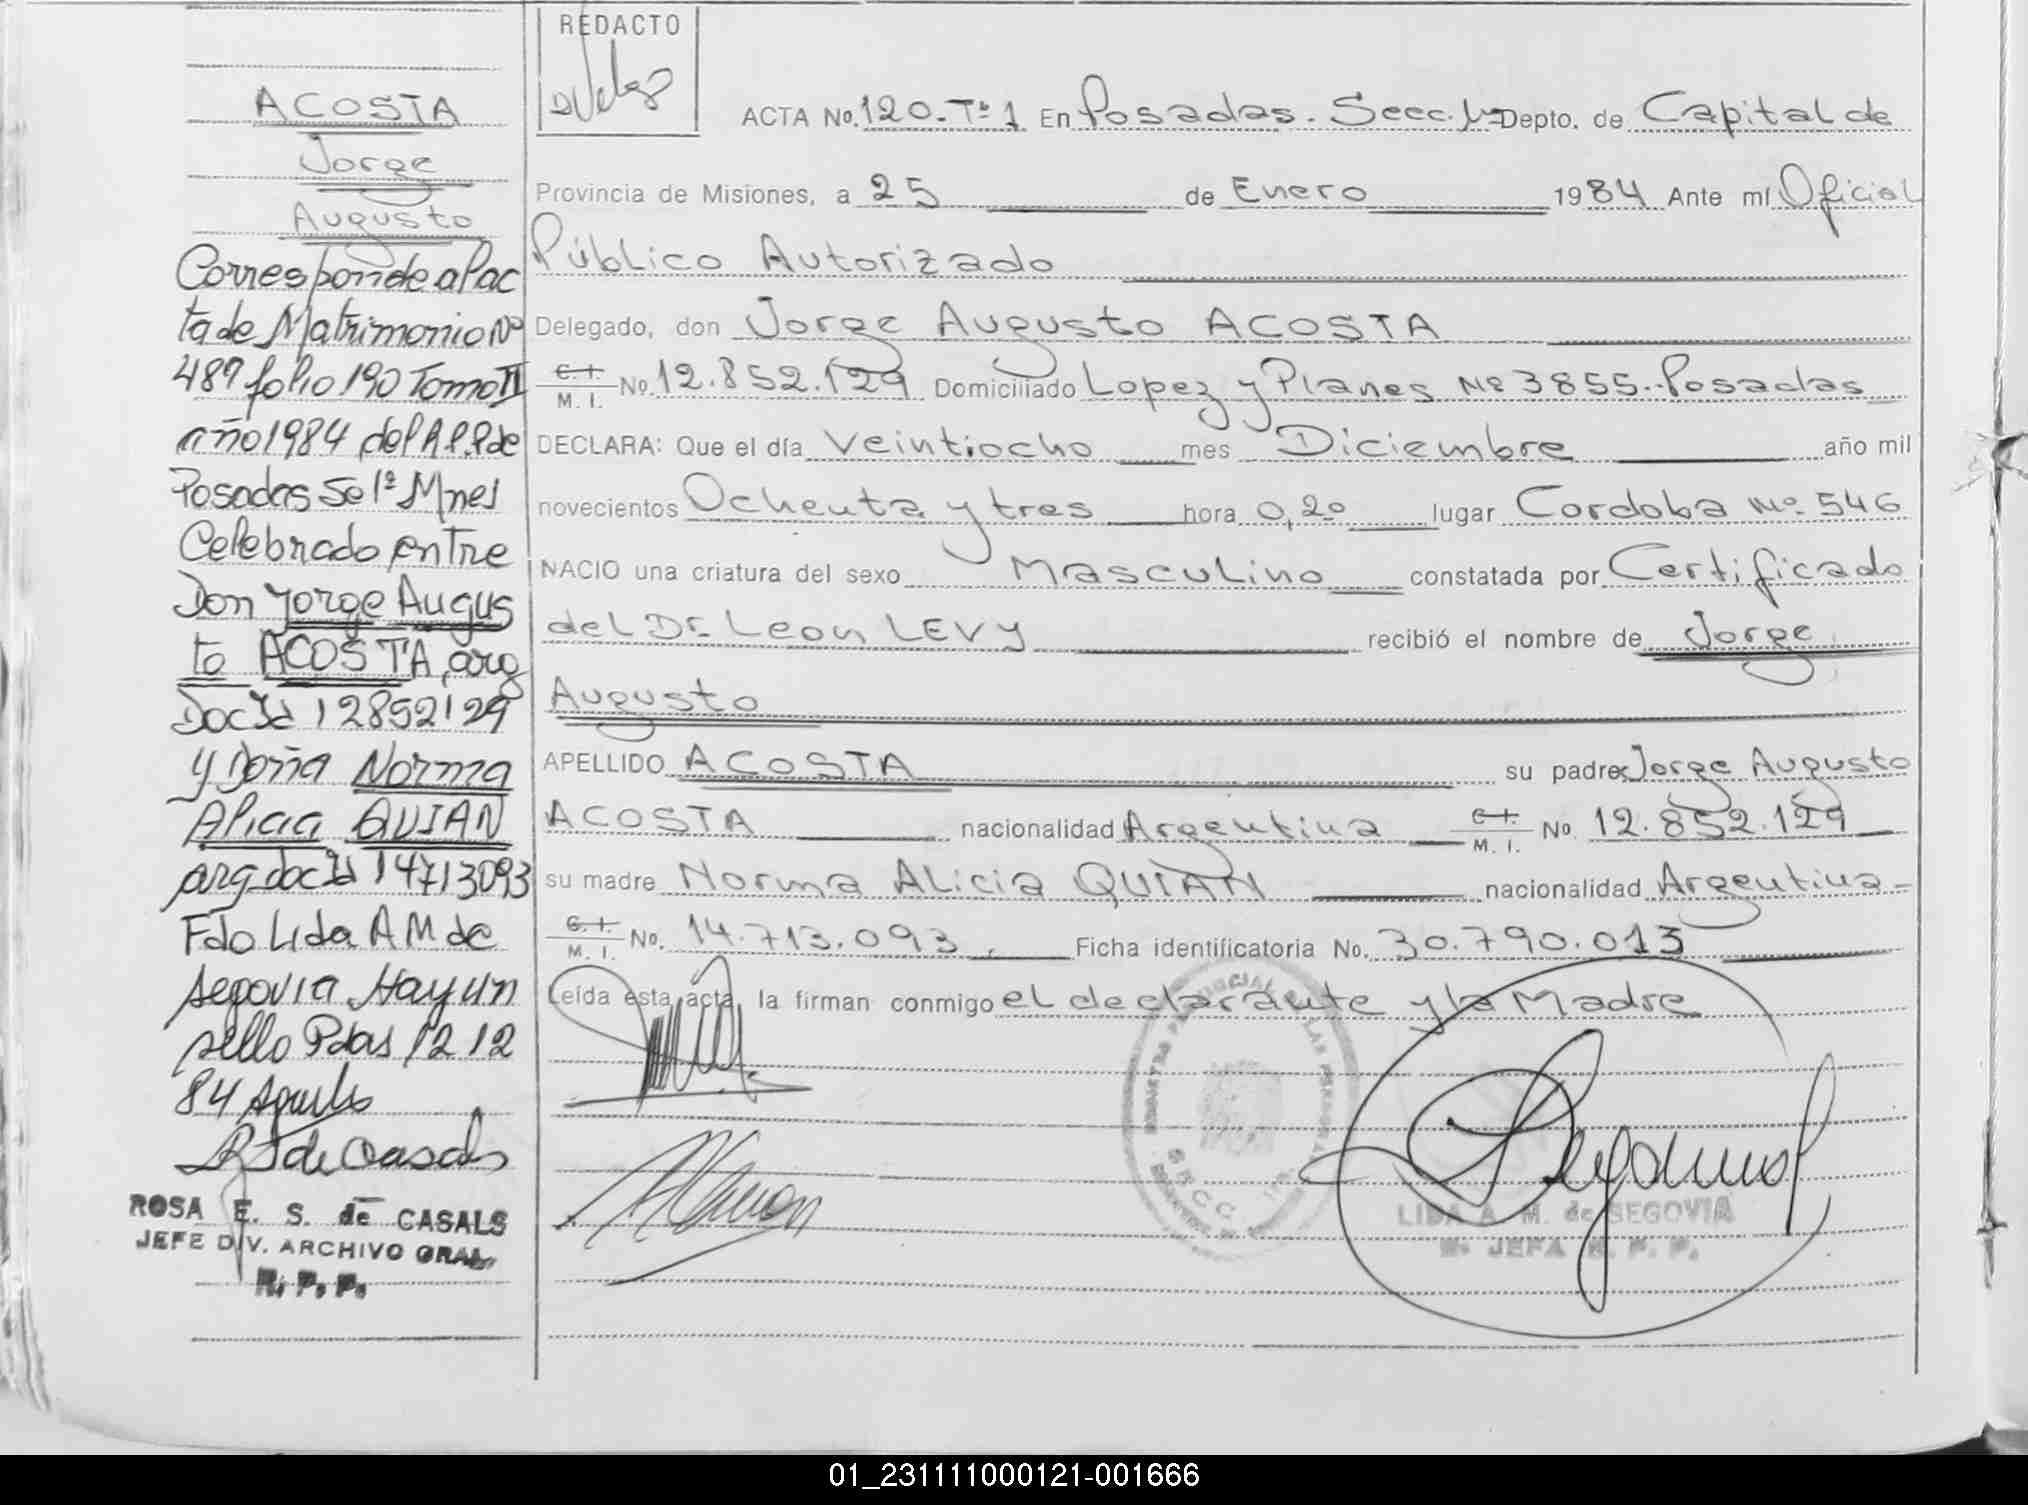 ACOSTA
Jorge
Augusto
Corresponde al ac
ta de Matrimonio Nº
487 folio 190 Tomo II
año 1984 del R.P.P de
Posadas Se 1ª Mnes
Celebrado entre
Don Jorge Augus
to ACOSTA, arg
Doc Id 12852129
y Doña Norma
Alicia QUIAN
arg doc Id 14713093
Fdo Lida A M de
Segovia Hay un
sello Pdas 12 12
84
R S de Casals
ROSA E. S. de CASALS
JEFE DIV. ARCHIVO GRAL.
R. P. P.
REDACTO
ACTA No. 120-Tº 1 En Posadas. Secc. 1ª Depto. de Capital de
Provincia de Misiones, a 25 de Enero 1984 Ante mí Oficial
Público Autorizado
Delegado, don Jorge Augusto ACOSTA
C. I.
M. I. No. 12.852.129 Domiciliado Lopez y Planes Nº 3855.-Posadas
DECLARA: Que el día Veintiocho mes Diciembre año mil
novecientos Ochenta y tres hora 0,20 lugar Cordoba Nº 546
NACIO una criatura del sexo Masculino constatada por Certificado
del Dr. Leon LEVY recibió el nombre de Jorge
Augusto
APELLIDO ACOSTA su padre: Jorge Augusto
ACOSTA nacionalidad Argentina C. I.
M. I. No. 12.852.129
su madre Norma Alicia QUIAN nacionalidad Argentina-
C. I.
M. I. No. 14.713.093. Ficha identificatoria No. 30.790.013
Leída esta acta, la firman conmigo el declarante y la Madre
LIDA A. M. de SEGOVIA
JEFA R. P. P.
01_231111000121-001666